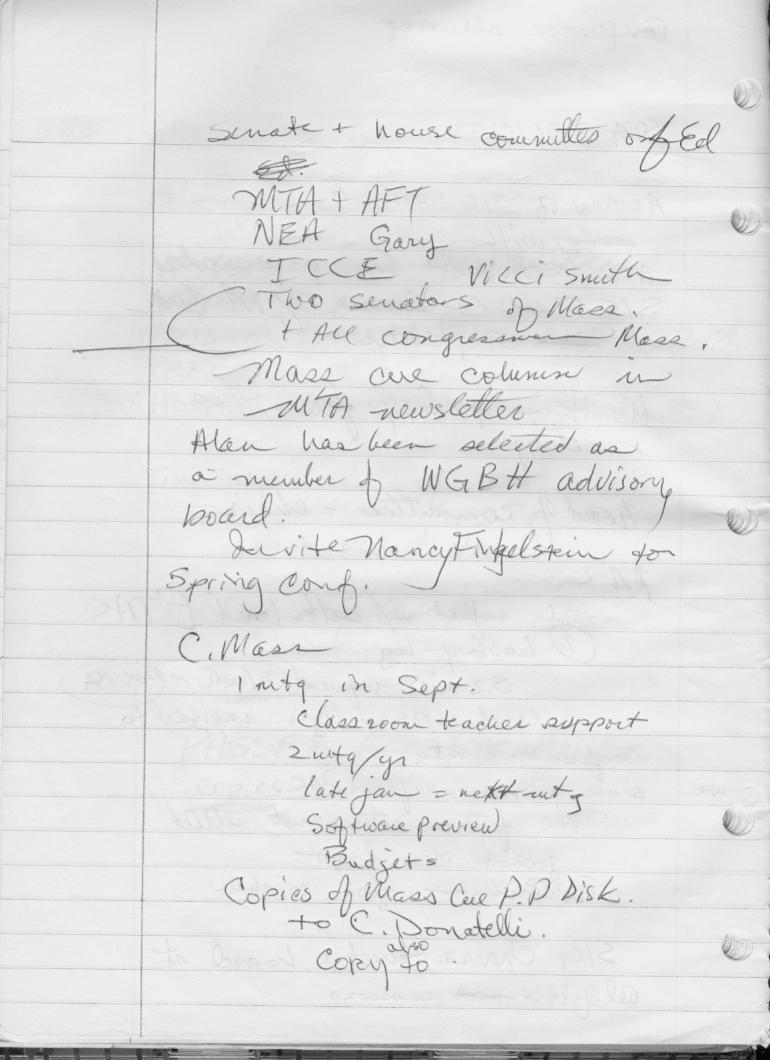 Senate + house committes of Ed
MTA + AFT
NEA Gary
ICCE Vicci Smith
Two senators of Mass.
+ All congressman Mass.
Mass cue column in
MTA newsletter
Alan has been selected as
a member of WGBH advisory
board.
Invite Nancy Finkelstein to
Spring Conf.
C. Mass
1 mtg in Sept.
classroom teacher support
2 mtg/yr
late jan = next mtg
Software preview
Budgets
Copies of Mass Cue P.P Disk.
to C. Donatelli.
also
Copy to